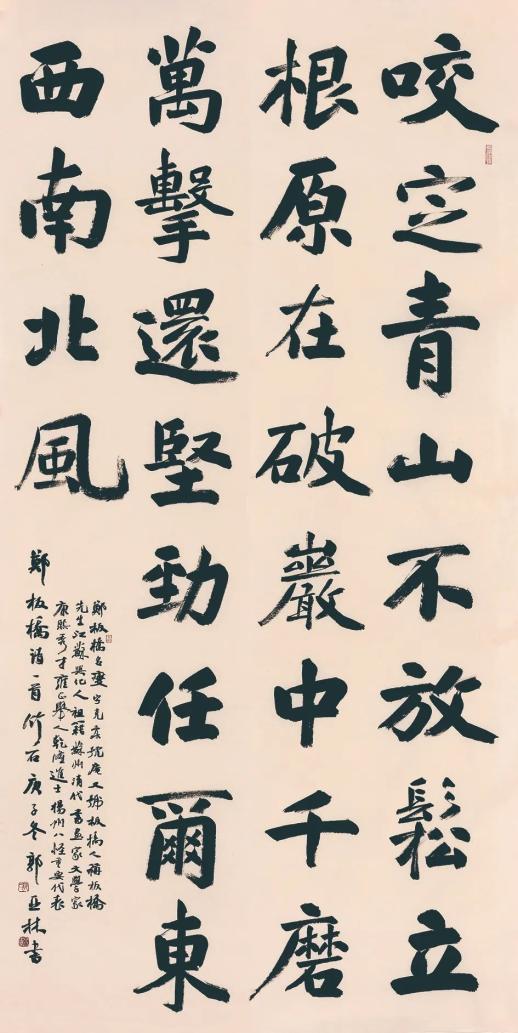 咬定青山不放鬆立
根原在破巖中千磨
萬擊還堅勁任爾東
西南北風
鄭板橋名燮字克柔號
板橋人稱板橋
先生江蘇興化人祖籍蘇州清代書畫家文學家
康熙秀才雍正舉人乾隆進士揚州八怪重要代表
鄭板橋詩一首竹石庚子冬郭亞林書